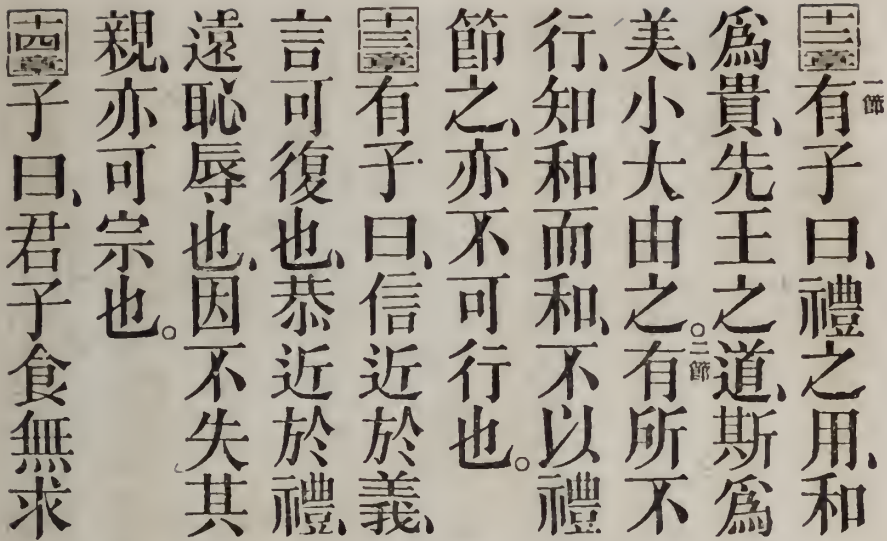 十二章 一節 有子曰、禮之用、和
爲貴、先王之道、斯爲
美、小大由之。二節 有所不
行、知和而和、不以禮
節之、亦不可行也。
十三章 有子曰、信近於義、
言可復也、恭近於禮、
遠恥辱也、因不失其
親、亦可宗也。
十四章 子曰、君子食無求